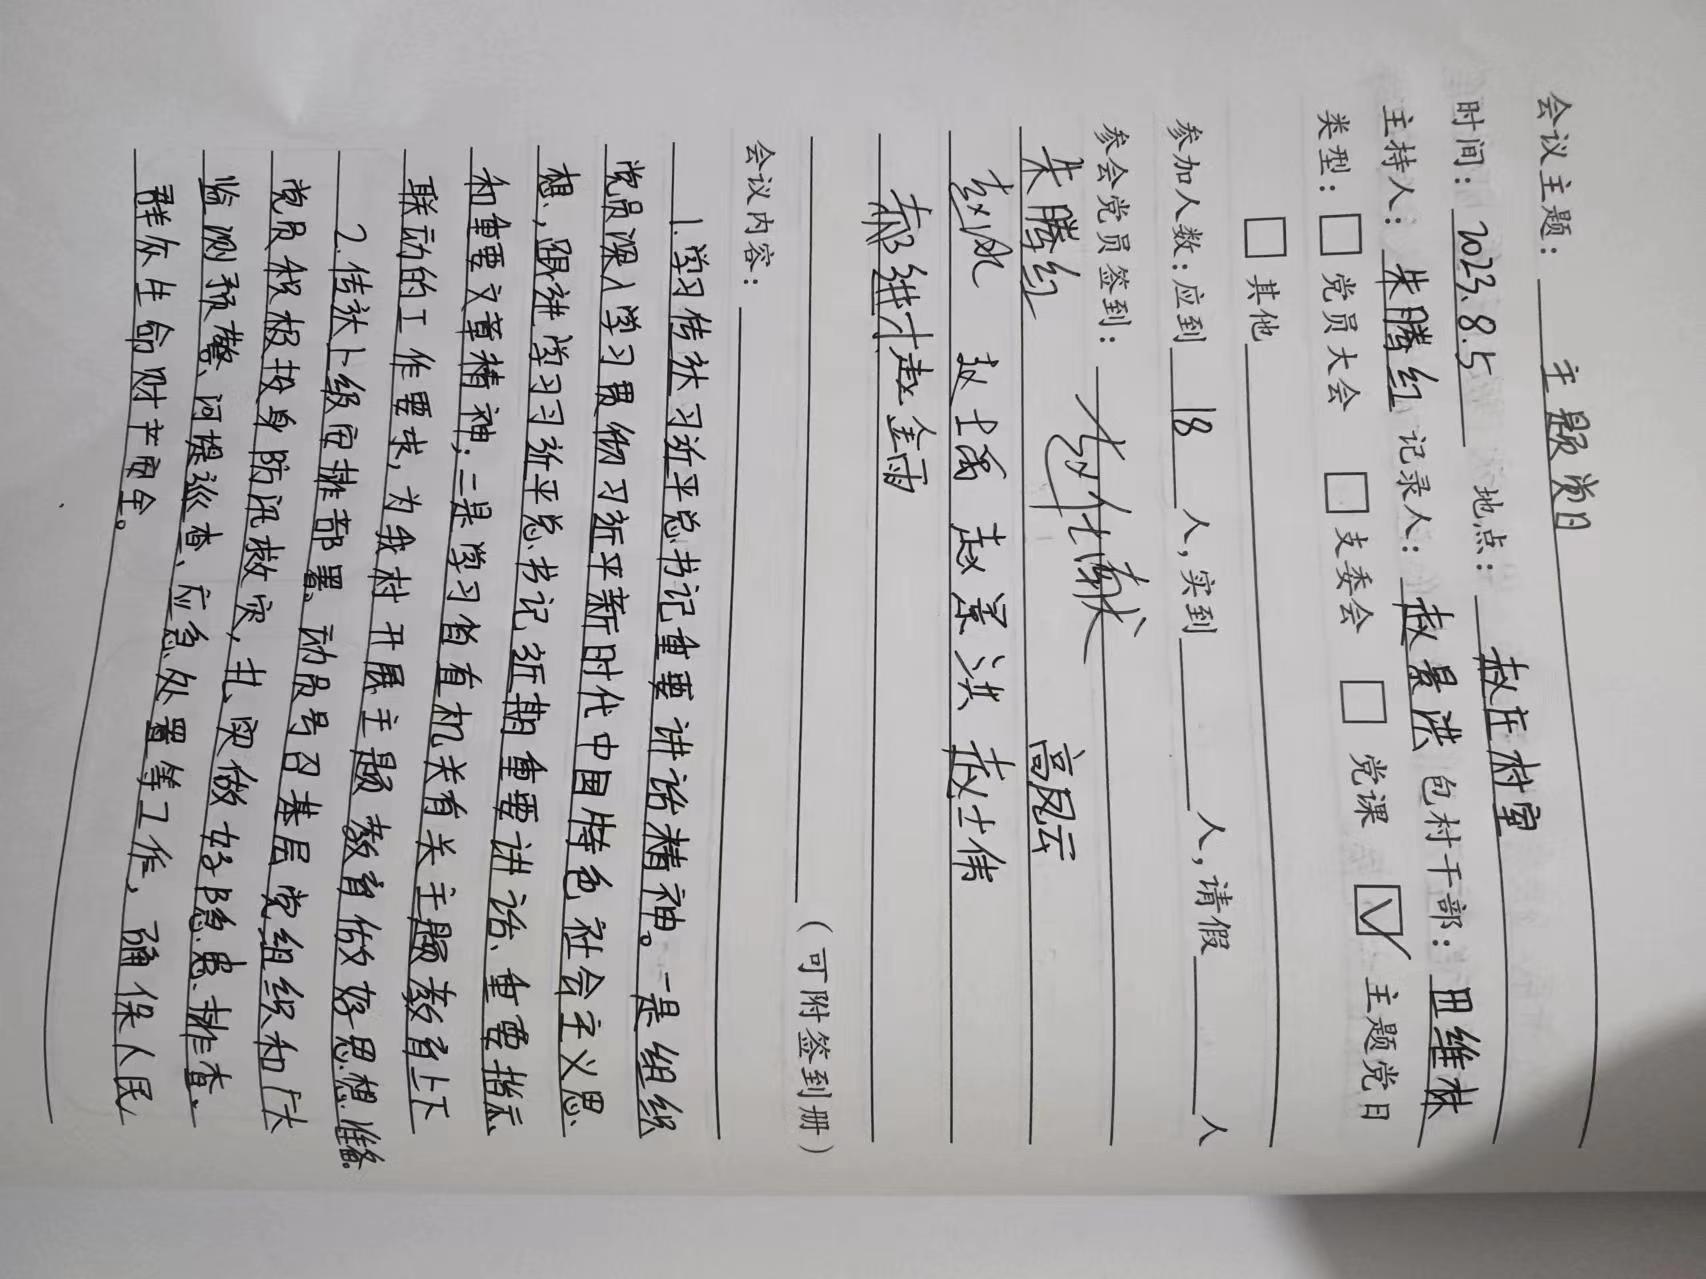 会议主题：主题党日
时间：2023.8.5 地点：赵庄村室
主持人：朱腾红 记录人：赵景洪 包村干部：田维林
类型：□党员大会 □支委会 □党课 ☑主题党日
□其他
参加人数：应到 18 人，实到 人，请假 人
参会党员签到：
朱腾红 高凤云
赵士禹 赵景洪 赵士伟
赵金雨
（可附签到册）
会议内容：
1.学习传达习近平总书记重要讲话精神。一是组织
党员深入学习贯彻习近平新时代中国特色社会主义思
想，跟进学习习近平总书记近期重要讲话、重要指示
和重要文章精神；二是学习省有机关有关主题教育上下
联动的工作要求，为我村开展主题教育做好思想准备。
2.传达上级安排部署、动员号召基层党组织和广大
党员积极投身防汛救灾，扎实做好隐患排查、
监测预警、河堤巡查、应急处置等工作，确保人民
群众生命财产安全。